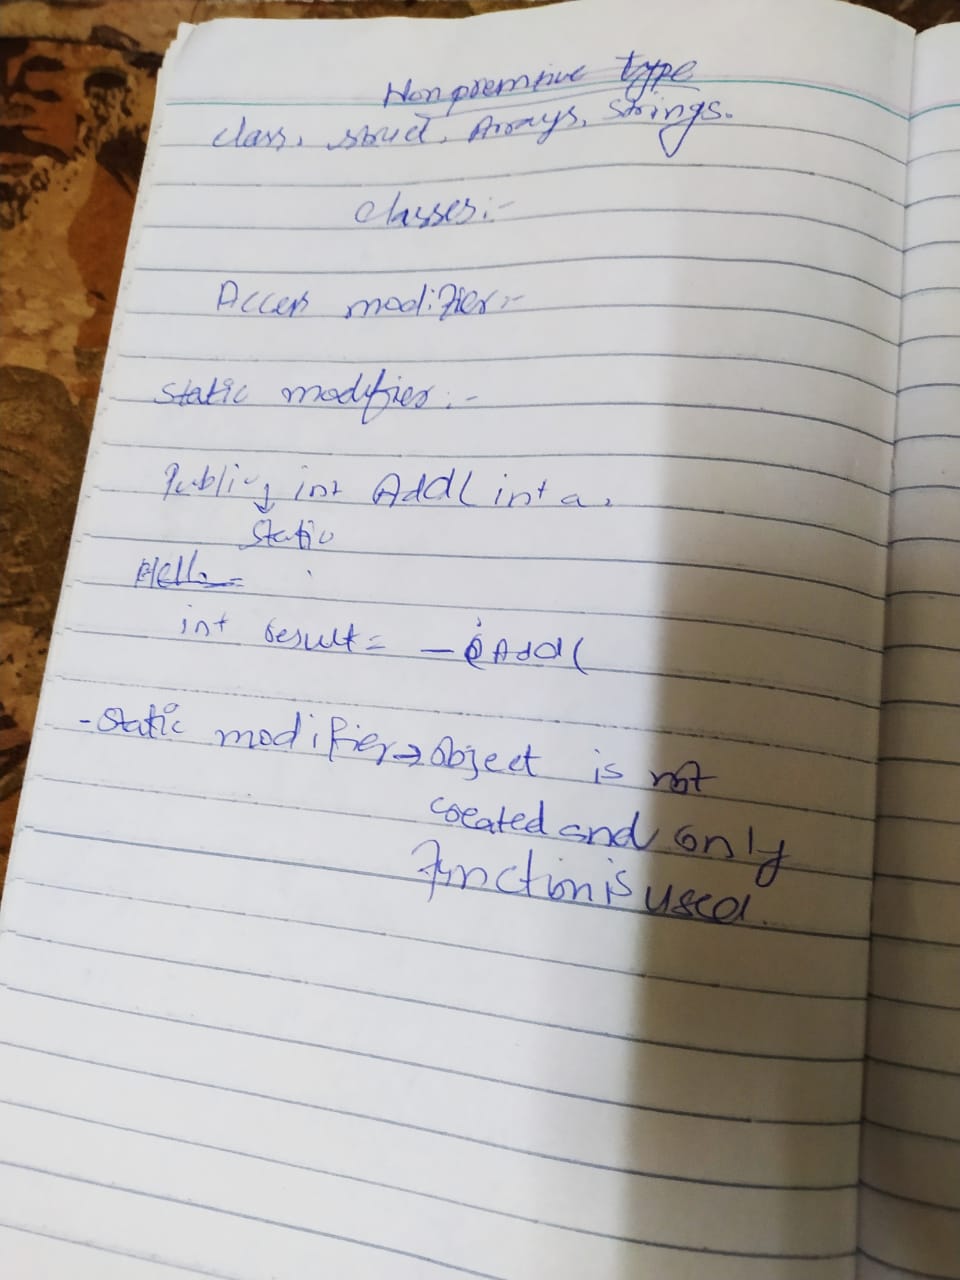 Nonpremtive type
class, struct, Arrays, Strings.
classes:-
Access modifier:-
static modifier:-
Public int Add( int a,
static
Hello
int result = — Add(
- static modifier → object is not
created and only
function is used.